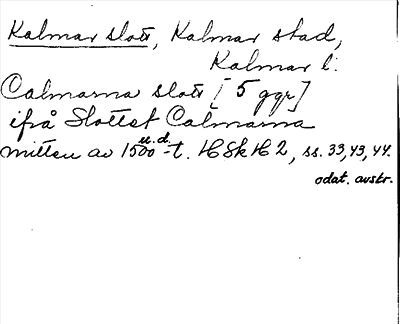 Kalmar slott, Kalmar stad,
Kalmar l.
Calmarna slott [5 ggr]
ifrå Slottet Calmarna
u.d.
mitten av 1500-t. HSkH 2, ss. 33, 43, 44.
odat. avskr.